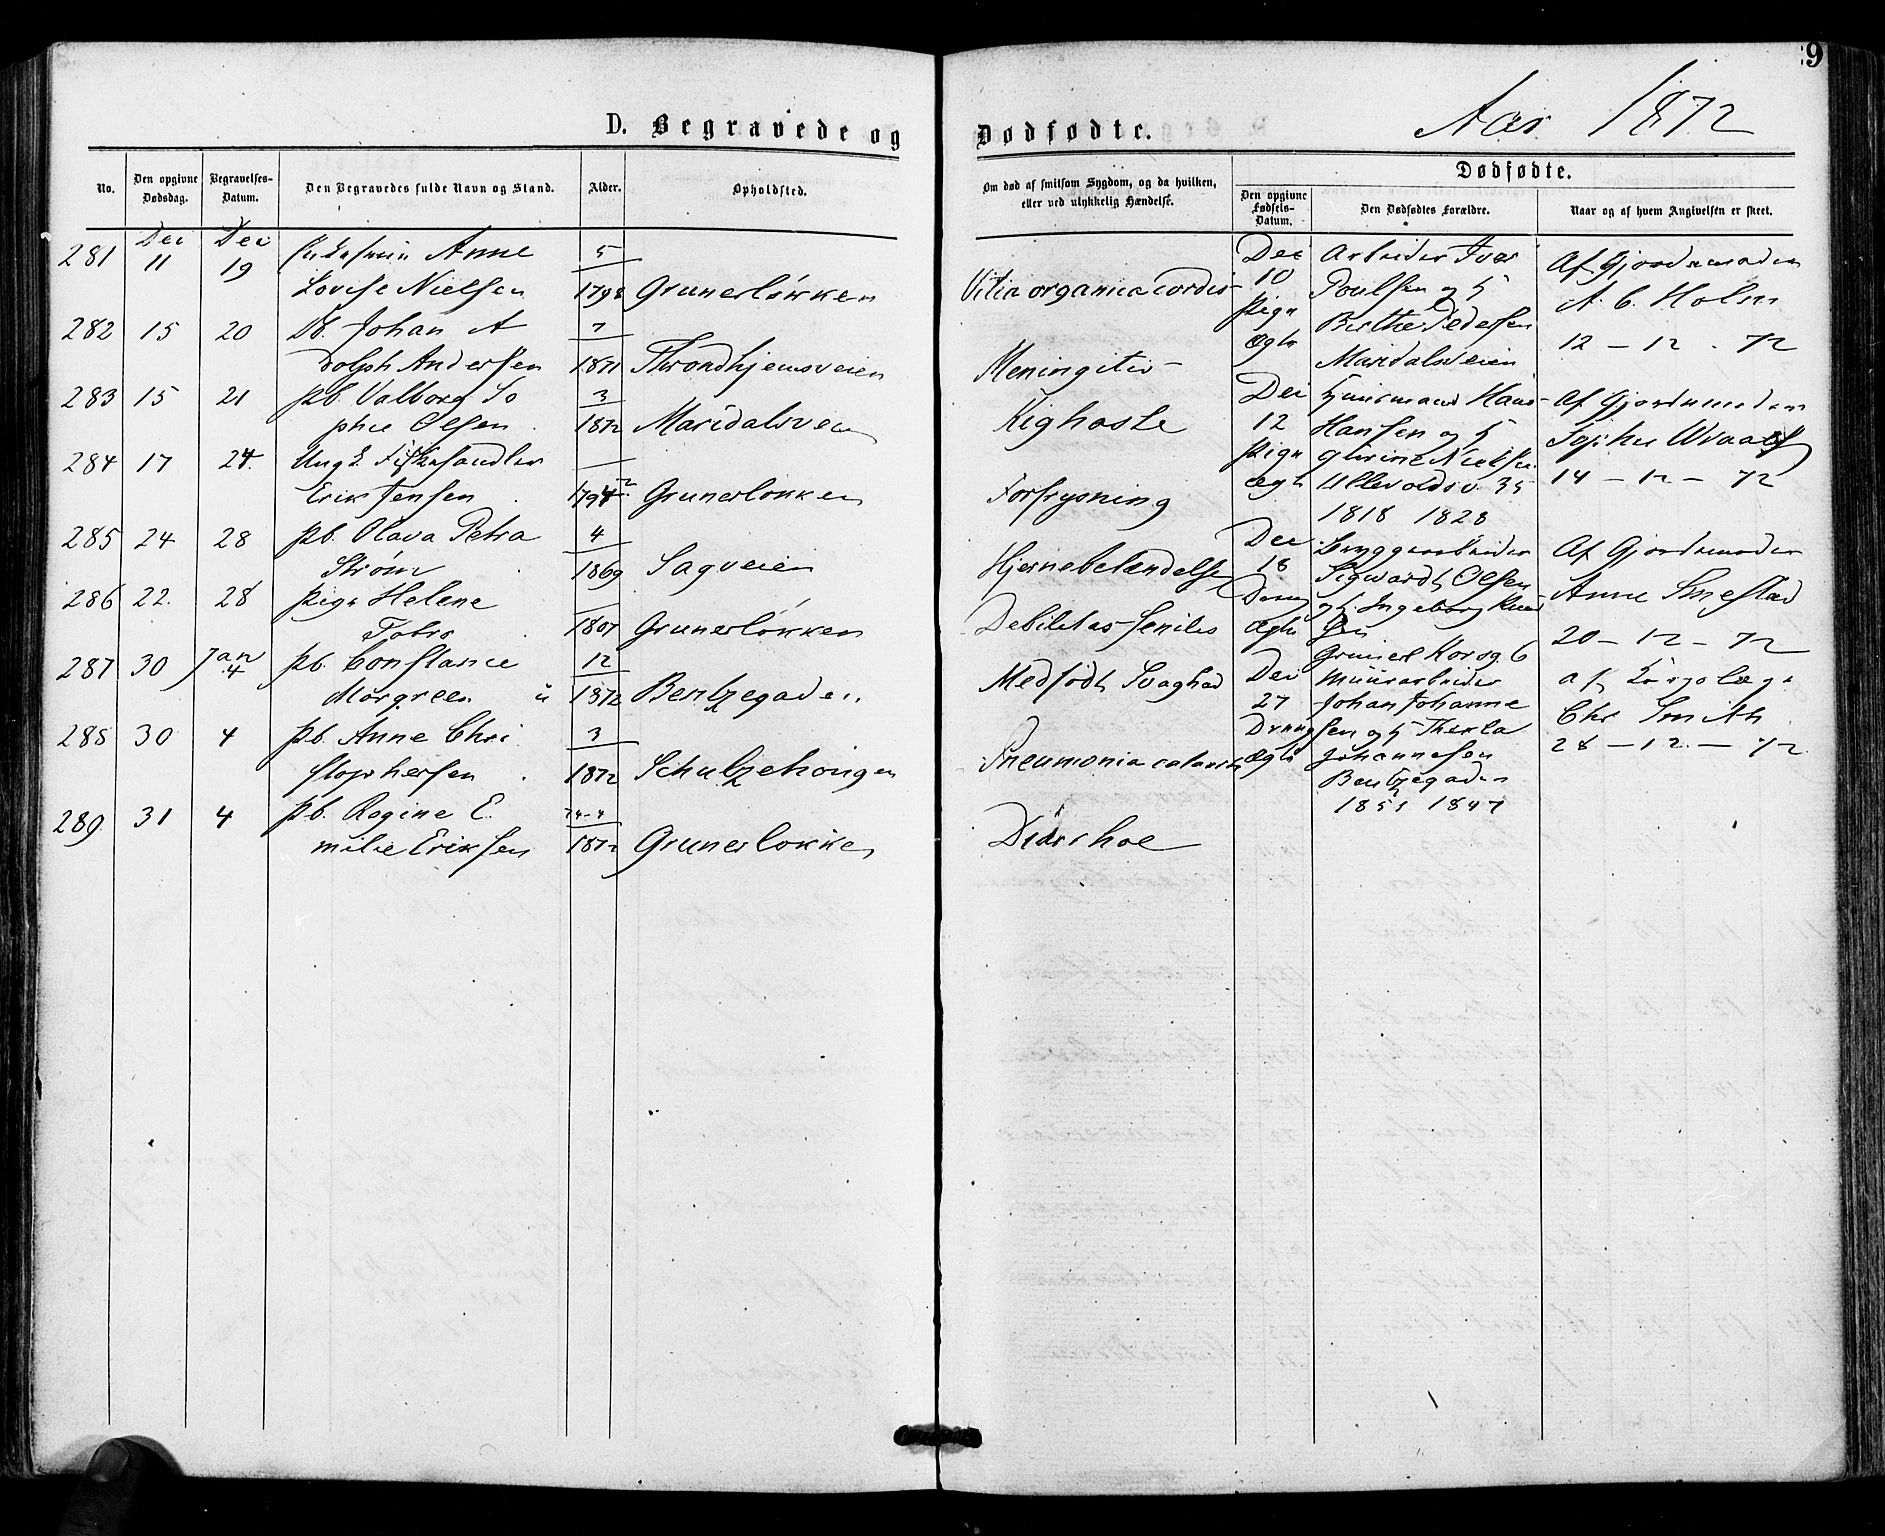 9
D. Begravede og Dødfødte.
Aar 1872
No.
Den opgivne Dødsdag.
Begravelses-Datum.
Den Begravedes fulde Navn og Stand.
Alder.
Opholdsted.
Om død af smitsom Sygdom, og da hvilken,
eller ved ulykkelig Hændelse.
Dødfødte.
Den opgivne Fødsels-Datum.
Den Dødfødtes Forældre.
Naar og af hvem Angivelsen er skeet.
Dec Dec
281 11 19 Anne 5
Lovise Nielsen 1798 Grunerløkken Vitia organica cordis
282 15 20 Db. Johan A
dolph Andersen 1871 Throndhjemsveien Meningitis
283 15 21 pb. Valborg So 3
phie Olsen 1872 Maridalsveien Kighoste
284 17 24. Ungk. Fiskehandler
Erik Jensen Grunerløkken Forfrysning
285 24 28 pb. Olava Petra 4
Strøm 1869 Sagveien Hjernebetændelse
286 22. 28 pige Helene
1807 Grunerløkken Debilitas senilis
287 30 Jan 4 pb. Constance 12
Morgreen 1872 Bentzegaden Medfødt Svaghed
288 30 4 pb. Anne Chri 3
stophersen 1872 Schultzehaugen Pneumonia catarrh
289 31 4 pb. Regine E.
milie Eriksen 1872 Grunerløkken Diarrhoe
Dec 10 pige ægte
Arbeider Iver
Poulsen og H
Berthe Pedersen
Maridalsveien
Af Gjordemoder
A. C. Holm
12 - 12 - 72
Dec 12 pige ægte
Huusmand Hans
Hansen og H
Nielsen
Ullevoldsv. 35
1818 1828
Af Gjordemoder
Sophie
14 - 12 - 72
Dec 18 Dreng ægte
Bryggearbeider
Sigwardt Olsen
og H. Ingeborg
Gruners Korsg 6
Af Gjordemoder
Anne Smestad
20 - 12 - 72
Dec 27 Dreng ægte
Muurarbeider
Johan Johanne
sen og H Thekla
Johannesen
Bentzegaden
1851 1847
af Corpslæge
Chr Smith
28 - 12 - 72